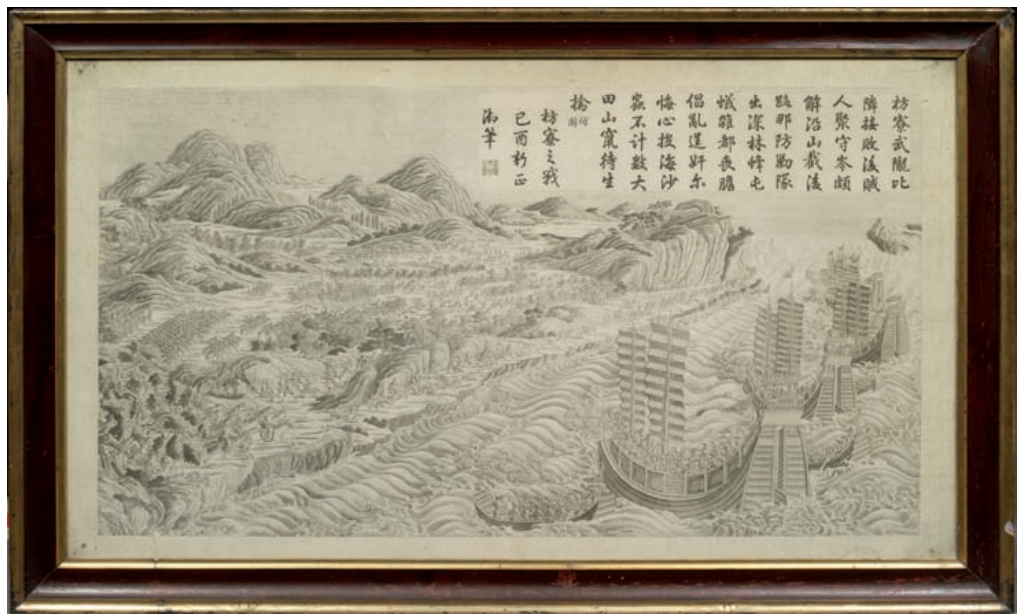 枋寮武隴比
隣接敗後賊
人聚守岑頗
解沿山截後
路那防勦隊
出深林蜂屯
蟻雜都喪膽
倡亂逞奸尔
悔心投海沙
蟲不计數大
田山竄待生
擒
枋寮之戰
己酉新正
御筆